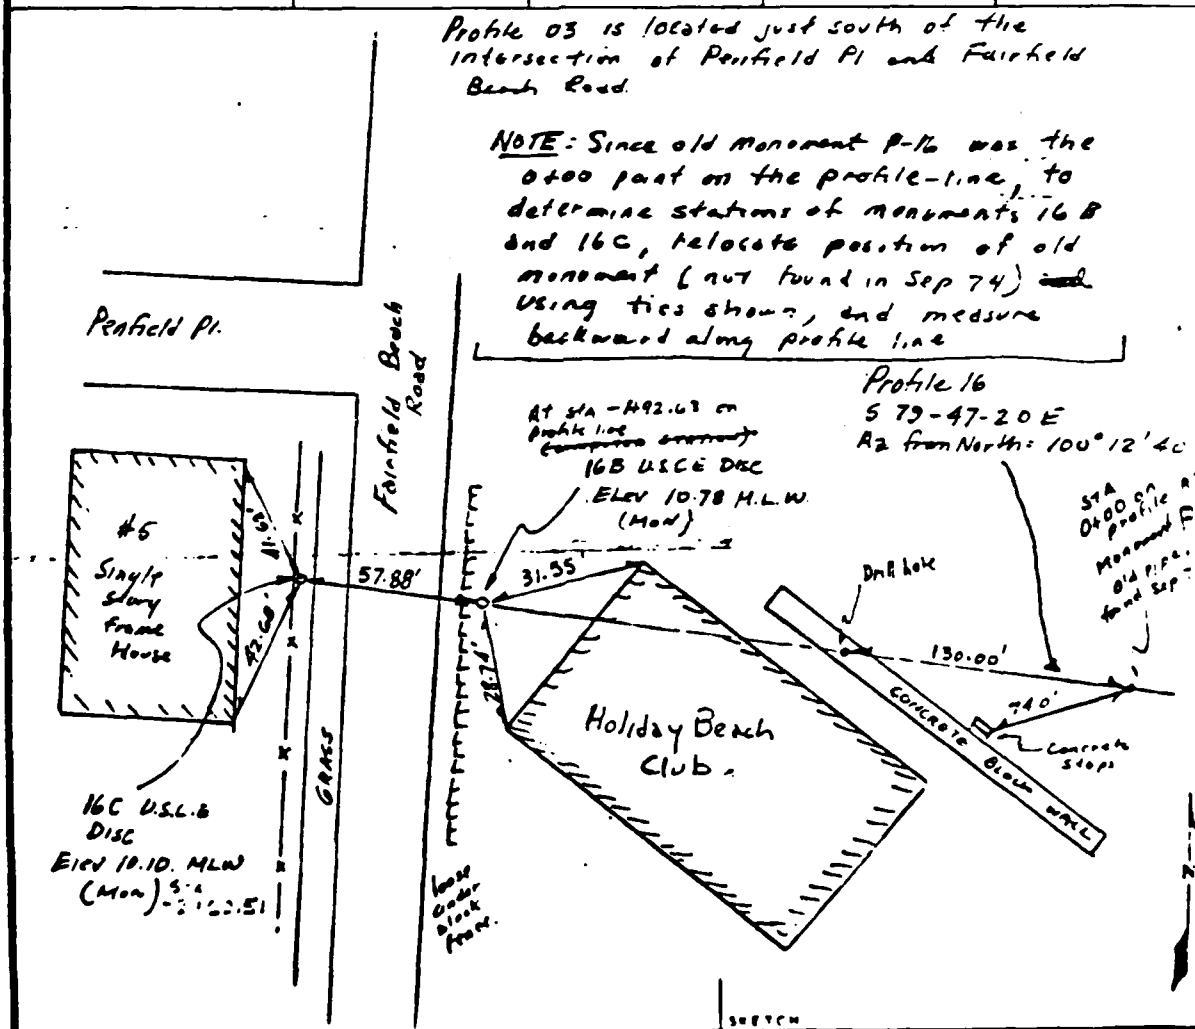 Profile 03 is located just south of the
intersection of Penfield Pl and Fairfield
Beach Road.
NOTE: Since old monument P-16 was the
0+00 point on the profile-line, to
determine stations of monuments 16B
and 16C, relocate position of old
monument (not found in Sep 74)
using ties shown, and measure
backward along profile line
Penfield Pl.
Fairfield Beach
Road
Profile 16
S 79-47-20 E
Az from North: 100° 12' 40
At sta -1+92.63 on
profile line
16B U.S.C.E DISC
ELEV 10.78 M.L.W.
(MON)
STA
0+00 on
profile
Monument
old pipe,
found Sep
#5
Single
story
Frame
House
41.62'
42.68'
57.88'
31.55'
28.74'
Drill hole
130.00'
740'
CONCRETE BLOCK WALL
Concrete
steps
Holiday Beach
Club.
GRASS
16C U.S.C.E
DISC
Elev 10.10. MLW
(Mon)
loose
cinder
block
fence.
N
SKETCH